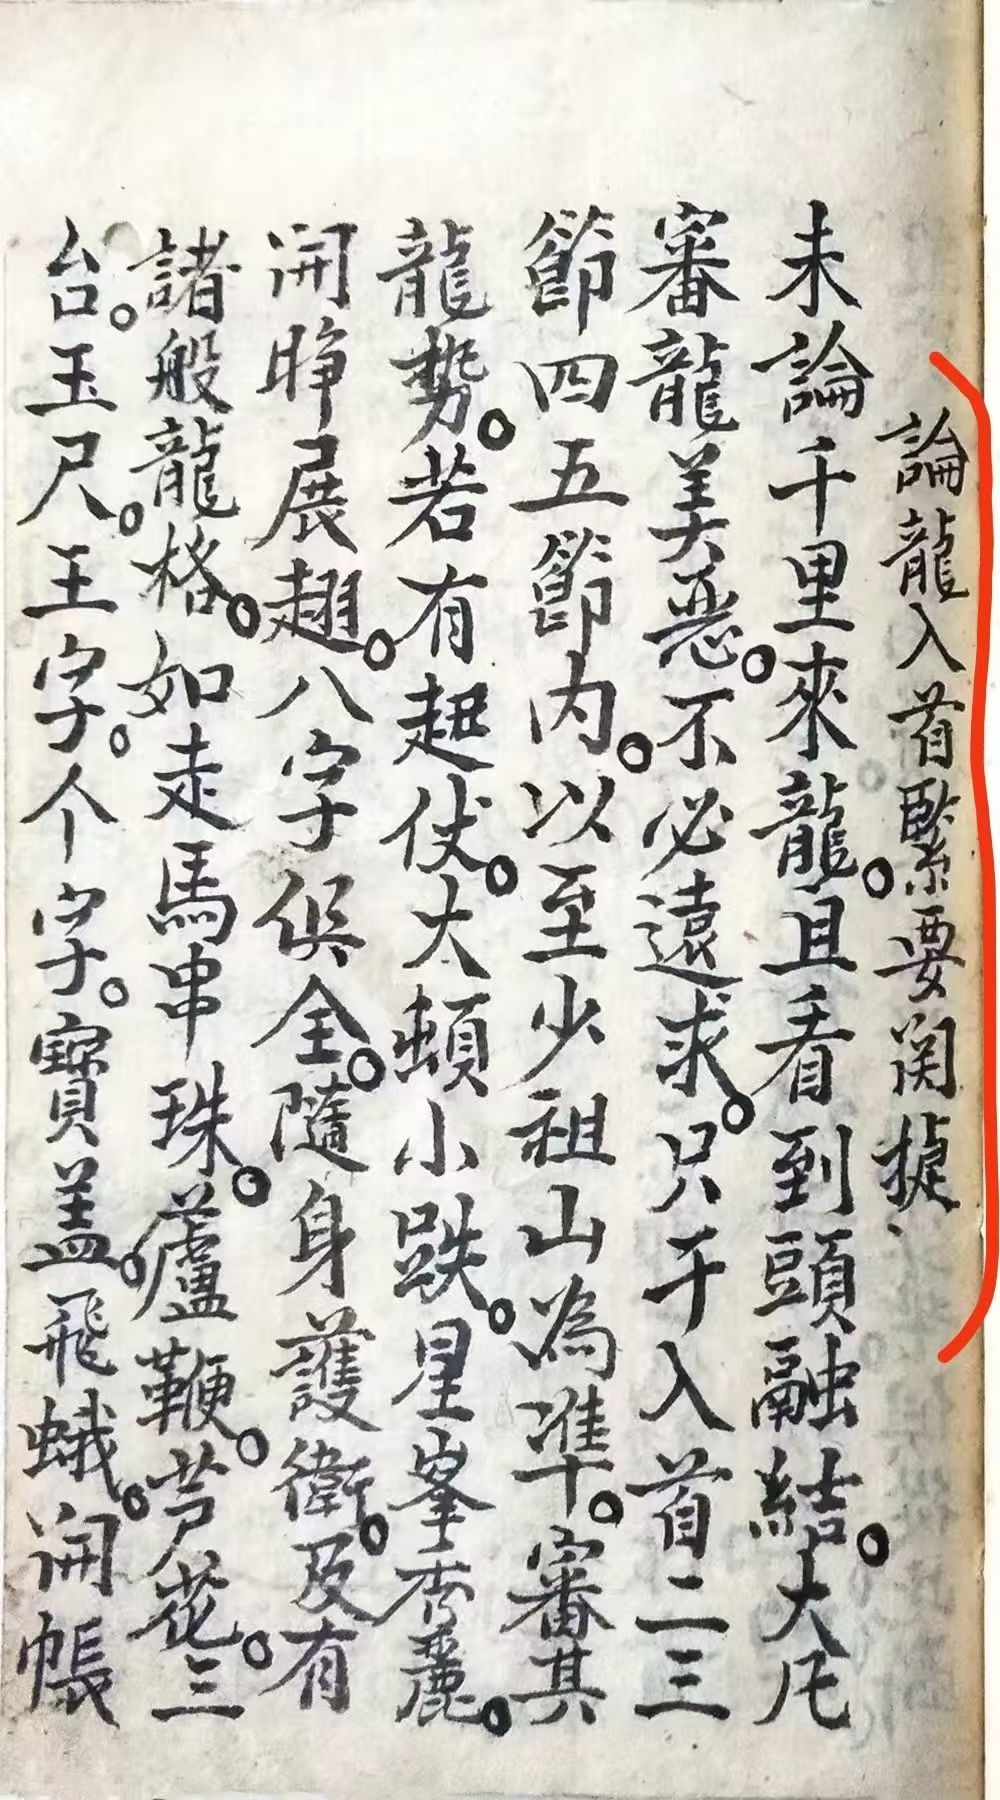 論龍入首緊要関捷、
未論千里來龍。且看到頭融結。大凡
審龍美惡。不必遠求。只于入首二三
節四五節内。以至少祖山為準。審其
龍勢。若有起伏。大頓小跌。星峯秀麗。
開睁展翅。八字俱全。隨身護衛。及有
諸般龍格。如走馬串珠。蘆鞭。芦花。三
台。玉尺。王字。个字。寶盖。飛蛾。開帳